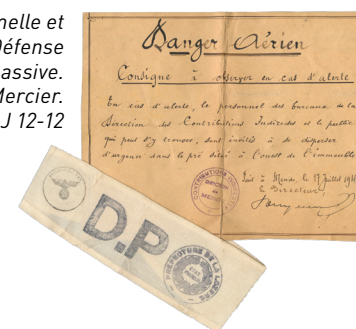 nelle et
Défense
assive.
Mercier.
J 12-12
Danger Aérien
Consigne à observer en cas d'alerte
En cas d'alerte, le personnel des bureaux de la
Direction des Contributions Indirectes et le public
qui peut s'y trouver, sont invités à se disperser
d'urgence dans le pré situé à l'ouest de l'immeuble
Fait à Mende, le 17 Juillet 194
Le Directeur
CONTRIBUTIONS
DIRECTION
MENDE
D.P
PREFECTURE DE LA LOZERE
ETAT